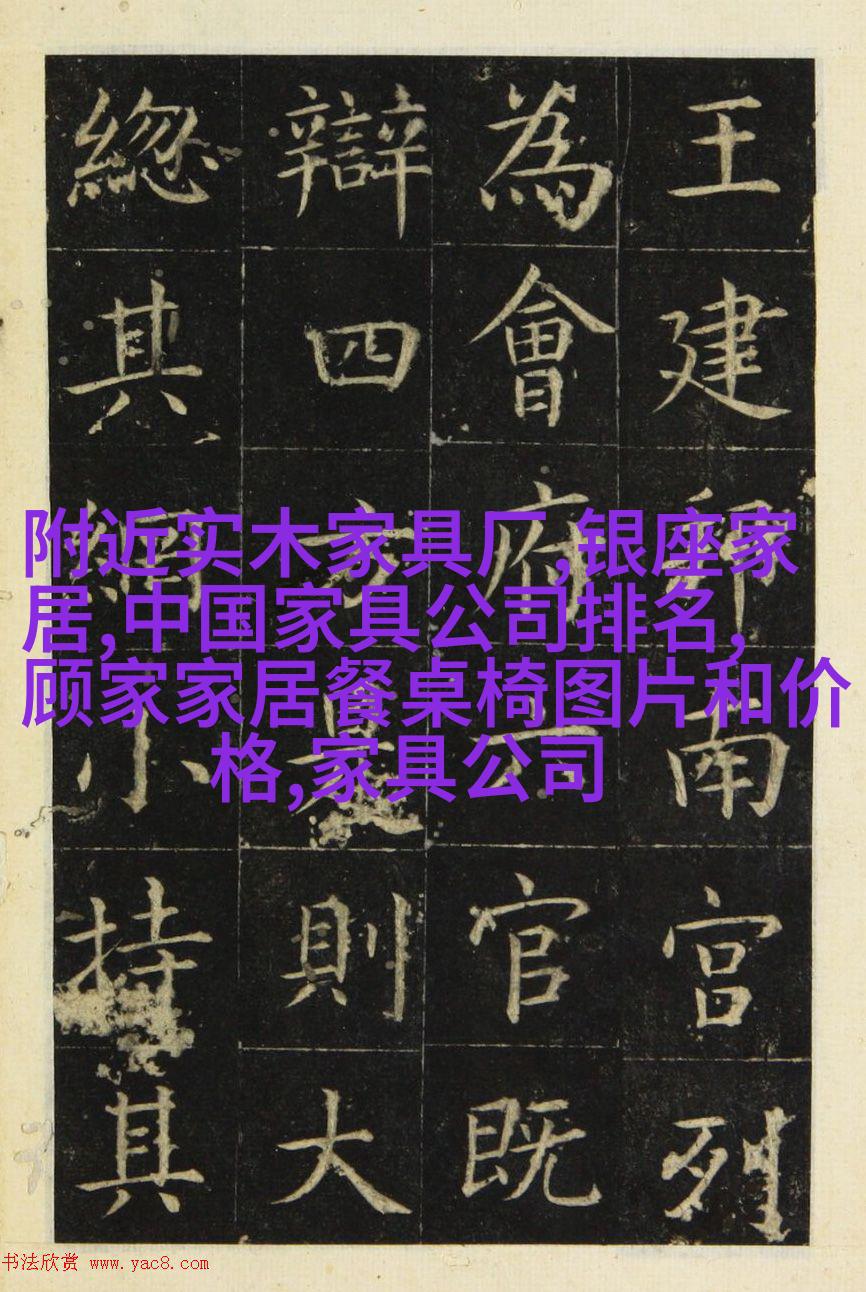 王建南宮列
為會府六官既
辯四方是則大
緫其綱小持其
附近实木家具厂,银座家
居,中国家具公司排名,
顾家家居餐桌椅图片和价
格,家具公司
书法欣赏 www.yac8.com